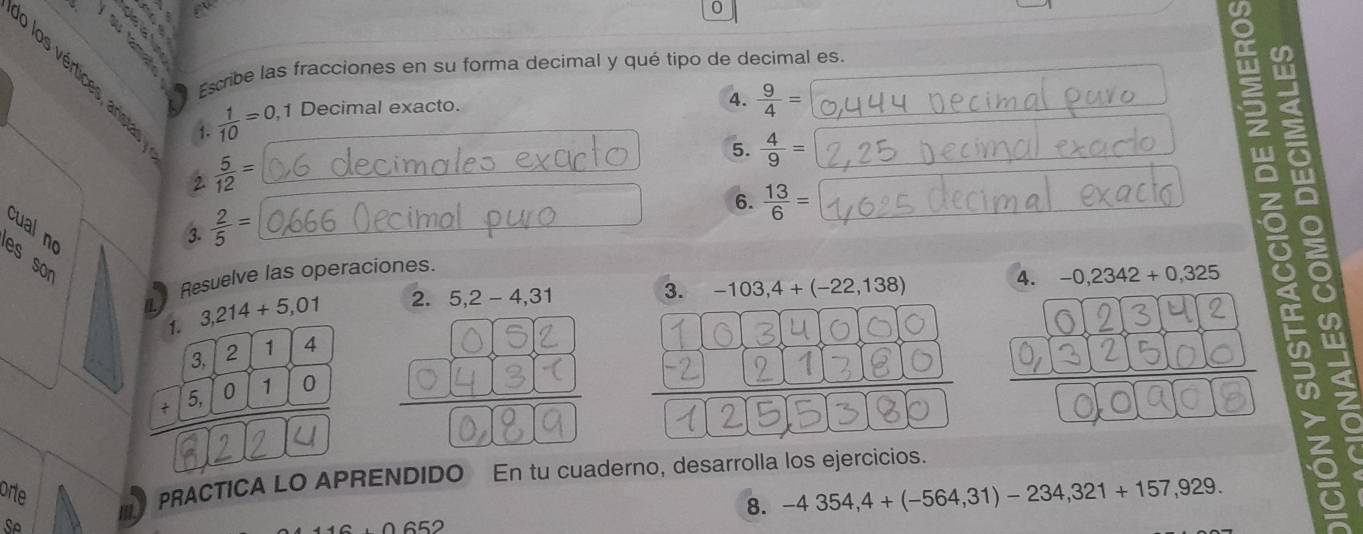 0
Escribe las fracciones en su forma decimal y qué tipo de decimal es.
1. 1/10 = 0,1 Decimal exacto.
2. 5/12 = 0,6 decimales exacto
3. 2/5 = 0,666 Decimal puro
4. 9/4 = 0,444 Decimal puro
5. 4/9 = 2,25 Decimal exacto
6. 13/6 = 1,625 decimal exacto
II. Resuelve las operaciones.
1. 3,214 + 5,01
3, 2 1 4
+ 5, 0 1 0
8, 2 2 4
2. 5,2 − 4,31
0 5 2
0 4 3 1
0, 8 9
3. −103,4 + (−22,138)
1 0 3 4 0 0 0
-2 2 1 3 8 0
1 2 5, 5 3 8 0
4. −0,2342 + 0,325
0 2 3 4 2
0, 3 2 5 0 0
0, 0 9 0 8
III. PRACTICA LO APRENDIDO En tu cuaderno, desarrolla los ejercicios.
8. −4 354,4 + (−564,31) − 234,321 + 157,929.
ndo los vértices, aristas y
y su tamaño
cual no
les son
orte
se
DICIÓN Y SUSTRACCIÓN DE NÚMEROS
ACIONALES COMO DECIMALES